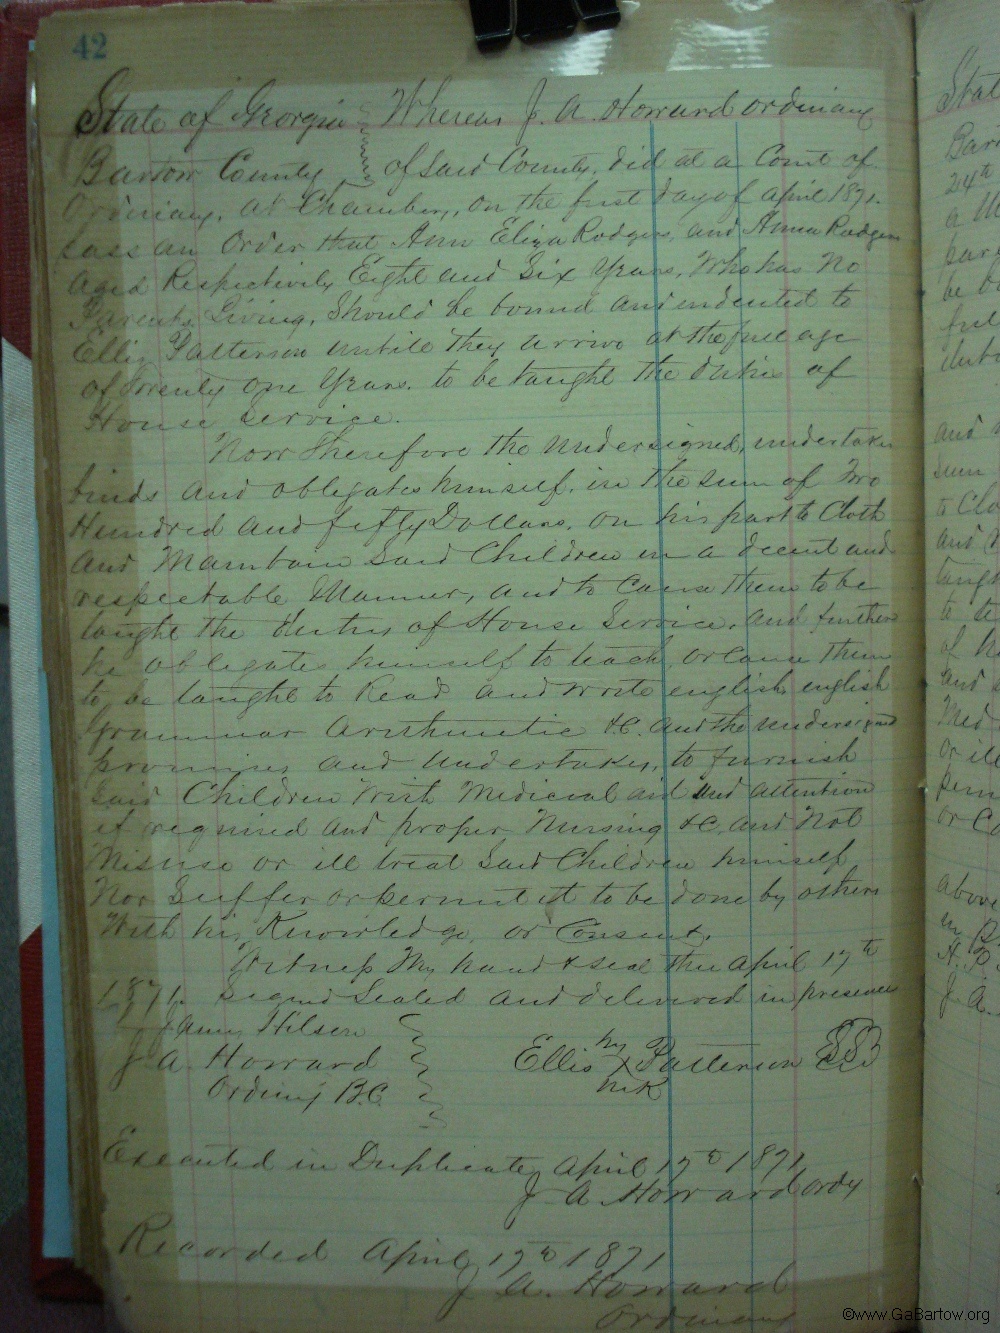 42
State of Georgia Whereas J. A. Howard ordinary
Bartow County of Said County, did at a Court of
Ordinary, at Chambers, on the first day of April 1871.
pass an Order that Ann Eliza Rodgers, and Anna Rodgers
aged Respectively Eight and Six Years, Who has No
Parents Living, Should be bound and indented to
Ellis Patterson untile they arrive at the full age
of Twenty one Years. to be taught the duties of
House Service.
Now Therefore the undersigned, undertakes
binds and obligates himself. in the Sum of Two
Hundred and fifty Dollars. on his part to Cloth
and Maintain Said Children in a decent and
respectable Manner, and to Cause them to be
taught the duties of House Service. and further
he obligates himself to teach, or cause them
to be taught to Read and write english english
grammar Arithmetic &C. and the undersigned
promises and undertakes, to furnish
Said Children With Medicial aid and attention
if required and proper Nursing &C, and Not
Misuse or ill treat Said Children himself
Nor Suffer or permit it to be done by others
With his Knowledge, or Consent.
Witness My hand & seal this April 17th
1871. Signed Sealed and delivered in presence
James Wilson
J A. Howard Ellis his X mrk Patterson
Ordiny B.C.
Executed in Duplicate, April 17th 1871
J A. Howard ordy
Recorded April 17th 1871
J A. Howard
Ordinary
State
Bar
24th
a
par
be
ful
duti
and
Sum
to Clo
and
taugh
to
of
and
Med
or ill
perm
or Ca
above
in
J A.
©www.GaBartow.org